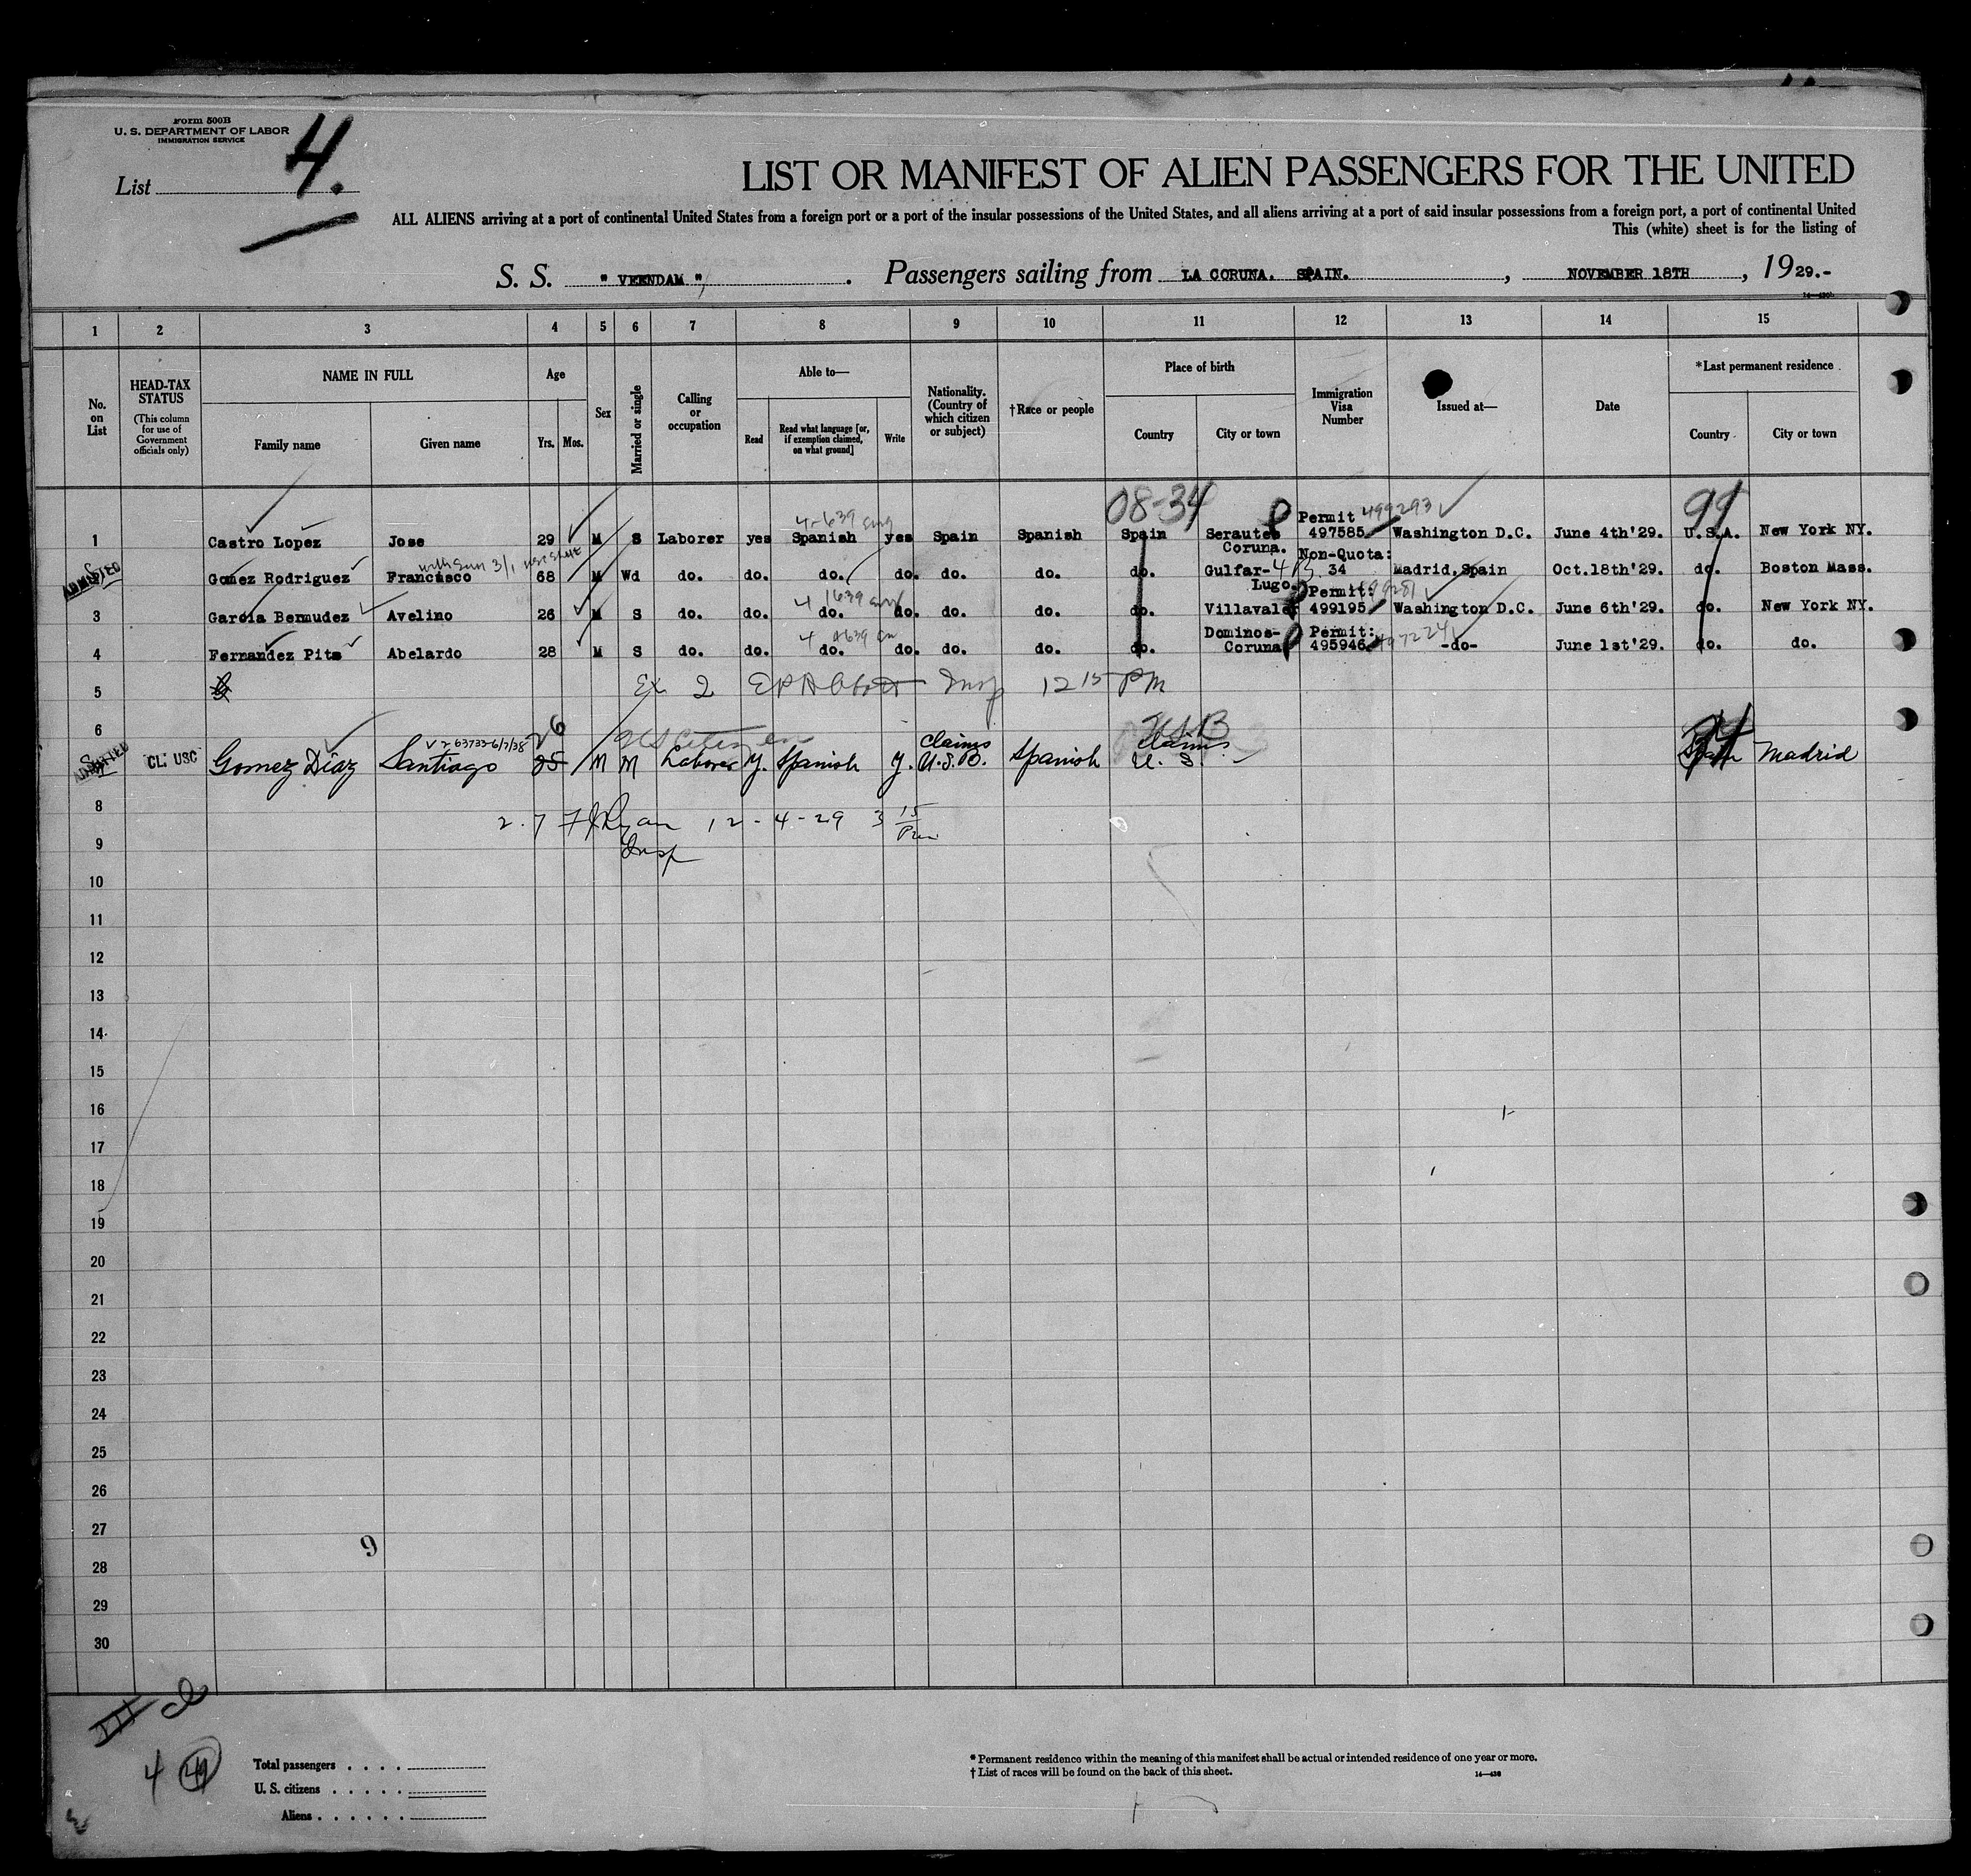 Form 500B
U. S. DEPARTMENT OF LABOR
IMMIGRATION SERVICE
List 4.
LIST OR MANIFEST OF ALIEN PASSENGERS FOR THE UNITED
ALL ALIENS arriving at a port of continental United States from a foreign port or a port of the insular possessions of the United States, and all aliens arriving at a port of said insular possessions from a foreign port, a port of continental United
This (white) sheet is for the listing of
S. S. " VEENDAM ", . Passengers sailing from LA CORUNA. SPAIN. , NOVEMBER 18TH , 1929.-
1 2 3 4 5 6 7 8 9 10 11 12 13 14 15
No. on List
HEAD-TAX STATUS
(This column for use of Government officials only)
NAME IN FULL
Family name Given name
Age
Yrs. Mos.
Sex
Married or single
Calling or occupation
Able to—
Read Read what language [or, if exemption claimed, on what ground] Write
Nationality. (Country of which citizen or subject)
†Race or people
Place of birth
Country City or town
Immigration Visa Number
Issued at—
Date
*Last permanent residence
Country City or town
08-34 Permit 499293 99
4-639
1 Castro Lopez Jose 29 M S Laborer yes Spanish yes Spain Spanish Spain Serautes Coruna. 497585 Washington D.C. June 4th'29. U.S.A. New York NY.
Non-Quota:
ADMITTED Gomez Rodriguez Francisco 68 M Wd do. do. do. do. do. do. do. Gulfar- Lugo. 34 Madrid.Spain Oct.18th'29. do. Boston Mass.
Permit:
3 Garcia Bermudez Avelino 26 M S do. do. do. do. do. do. do. Villavale 499195 Washington D.C. June 6th'29. do. New York NY.
Permit:
4 Fernandez Pita Abelardo 28 M S do. do. do. do. do. do. do. Dominos- Coruna 495946 -do- June 1st'29. do. do.
5 Ex 2 E P Abbott Insp 12 15 PM
6 26 US Citizen USB
ADMITTED CL. USC Gomez Diaz Santiago 25 M M Laborer y. Spanish y. Claims U.S.B. Spanish Claims U. S. Spain Madrid
8 2.7 F J Ryan 12-4-29 3 15 Pm
9 Insp
10
11
12
13
14
15
16
17
18
19
20
21
22
23
24
25
26
27
9
28
29
30
4 49
Total passengers . . . .
U. S. citizens . . . . .
Aliens . . . . . .
* Permanent residence within the meaning of this manifest shall be actual or intended residence of one year or more.
† List of races will be found on the back of this sheet.